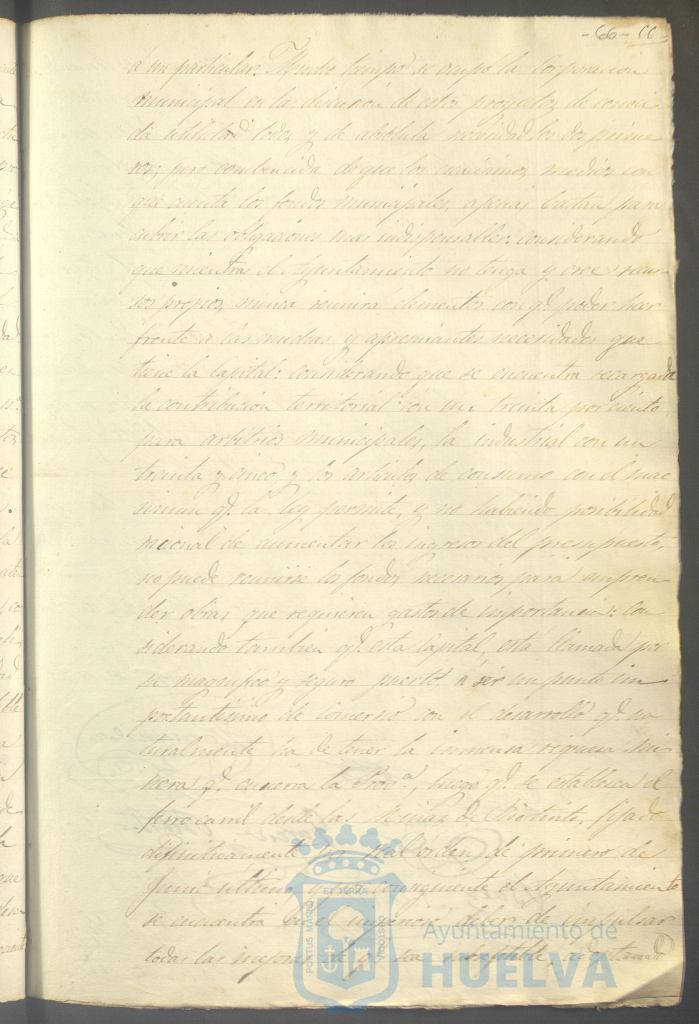 - 66 - 66
a un particular. Mucho tiempo se ocupó la Corporacion
municipal en la discusion de estos proyectos, de conoci
da utilidad todos y de absoluta necesidad los dos prime
ros; pero combencida de que los escasisimos medios con
que cuenta los fondos municipales, apenas bastan para
cubrir las obligaciones mas indispensables: considerando
que mientras el Ayuntamiento no tenga y cree recur
sos propios, nunca reunirá elementos con q.e poder hacer
frente a las muchas y apremiantes necesidades que
tiene la capital: considerando que se encuentra recargada
la contribucion territorial con un treinta por ciento
para arbitrios municipales, la industrial con un
treinta y cinco, y los articulos de consumo con el mac
simun q.e la ley permite, y no habiendo posibilidad
racional de aumentar los ingresos del presupuesto,
no puede reunirse los fondos necesarios para empren
der obras que requieren gastos de importancia: Con
siderando tambien q.e esta Capital, está llamada por
su magnifico y seguro puerto, á ser un punto im
portantisimo de comercio con el desarrollo q.e na
turalmente ha de tener la inmensa riqueza mi
nera q.e encierra la Prov.a, luego q.e se establezca el
ferrocarril desde las Minas de Riotinto, fijado
definitivamente por Real orden de primero de
Junio ultimo, y por consiguiente el Ayuntamiento
se encuentra en el imperioso deber de impulsar
todas las mejoras de q.e sea susceptible, adoptando
PORTUS MARIS ET TERRE CUSTODIA
Ayuntamiento de
HUELVA